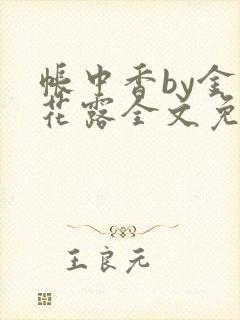 帐中香by金
花露全文免
王良元